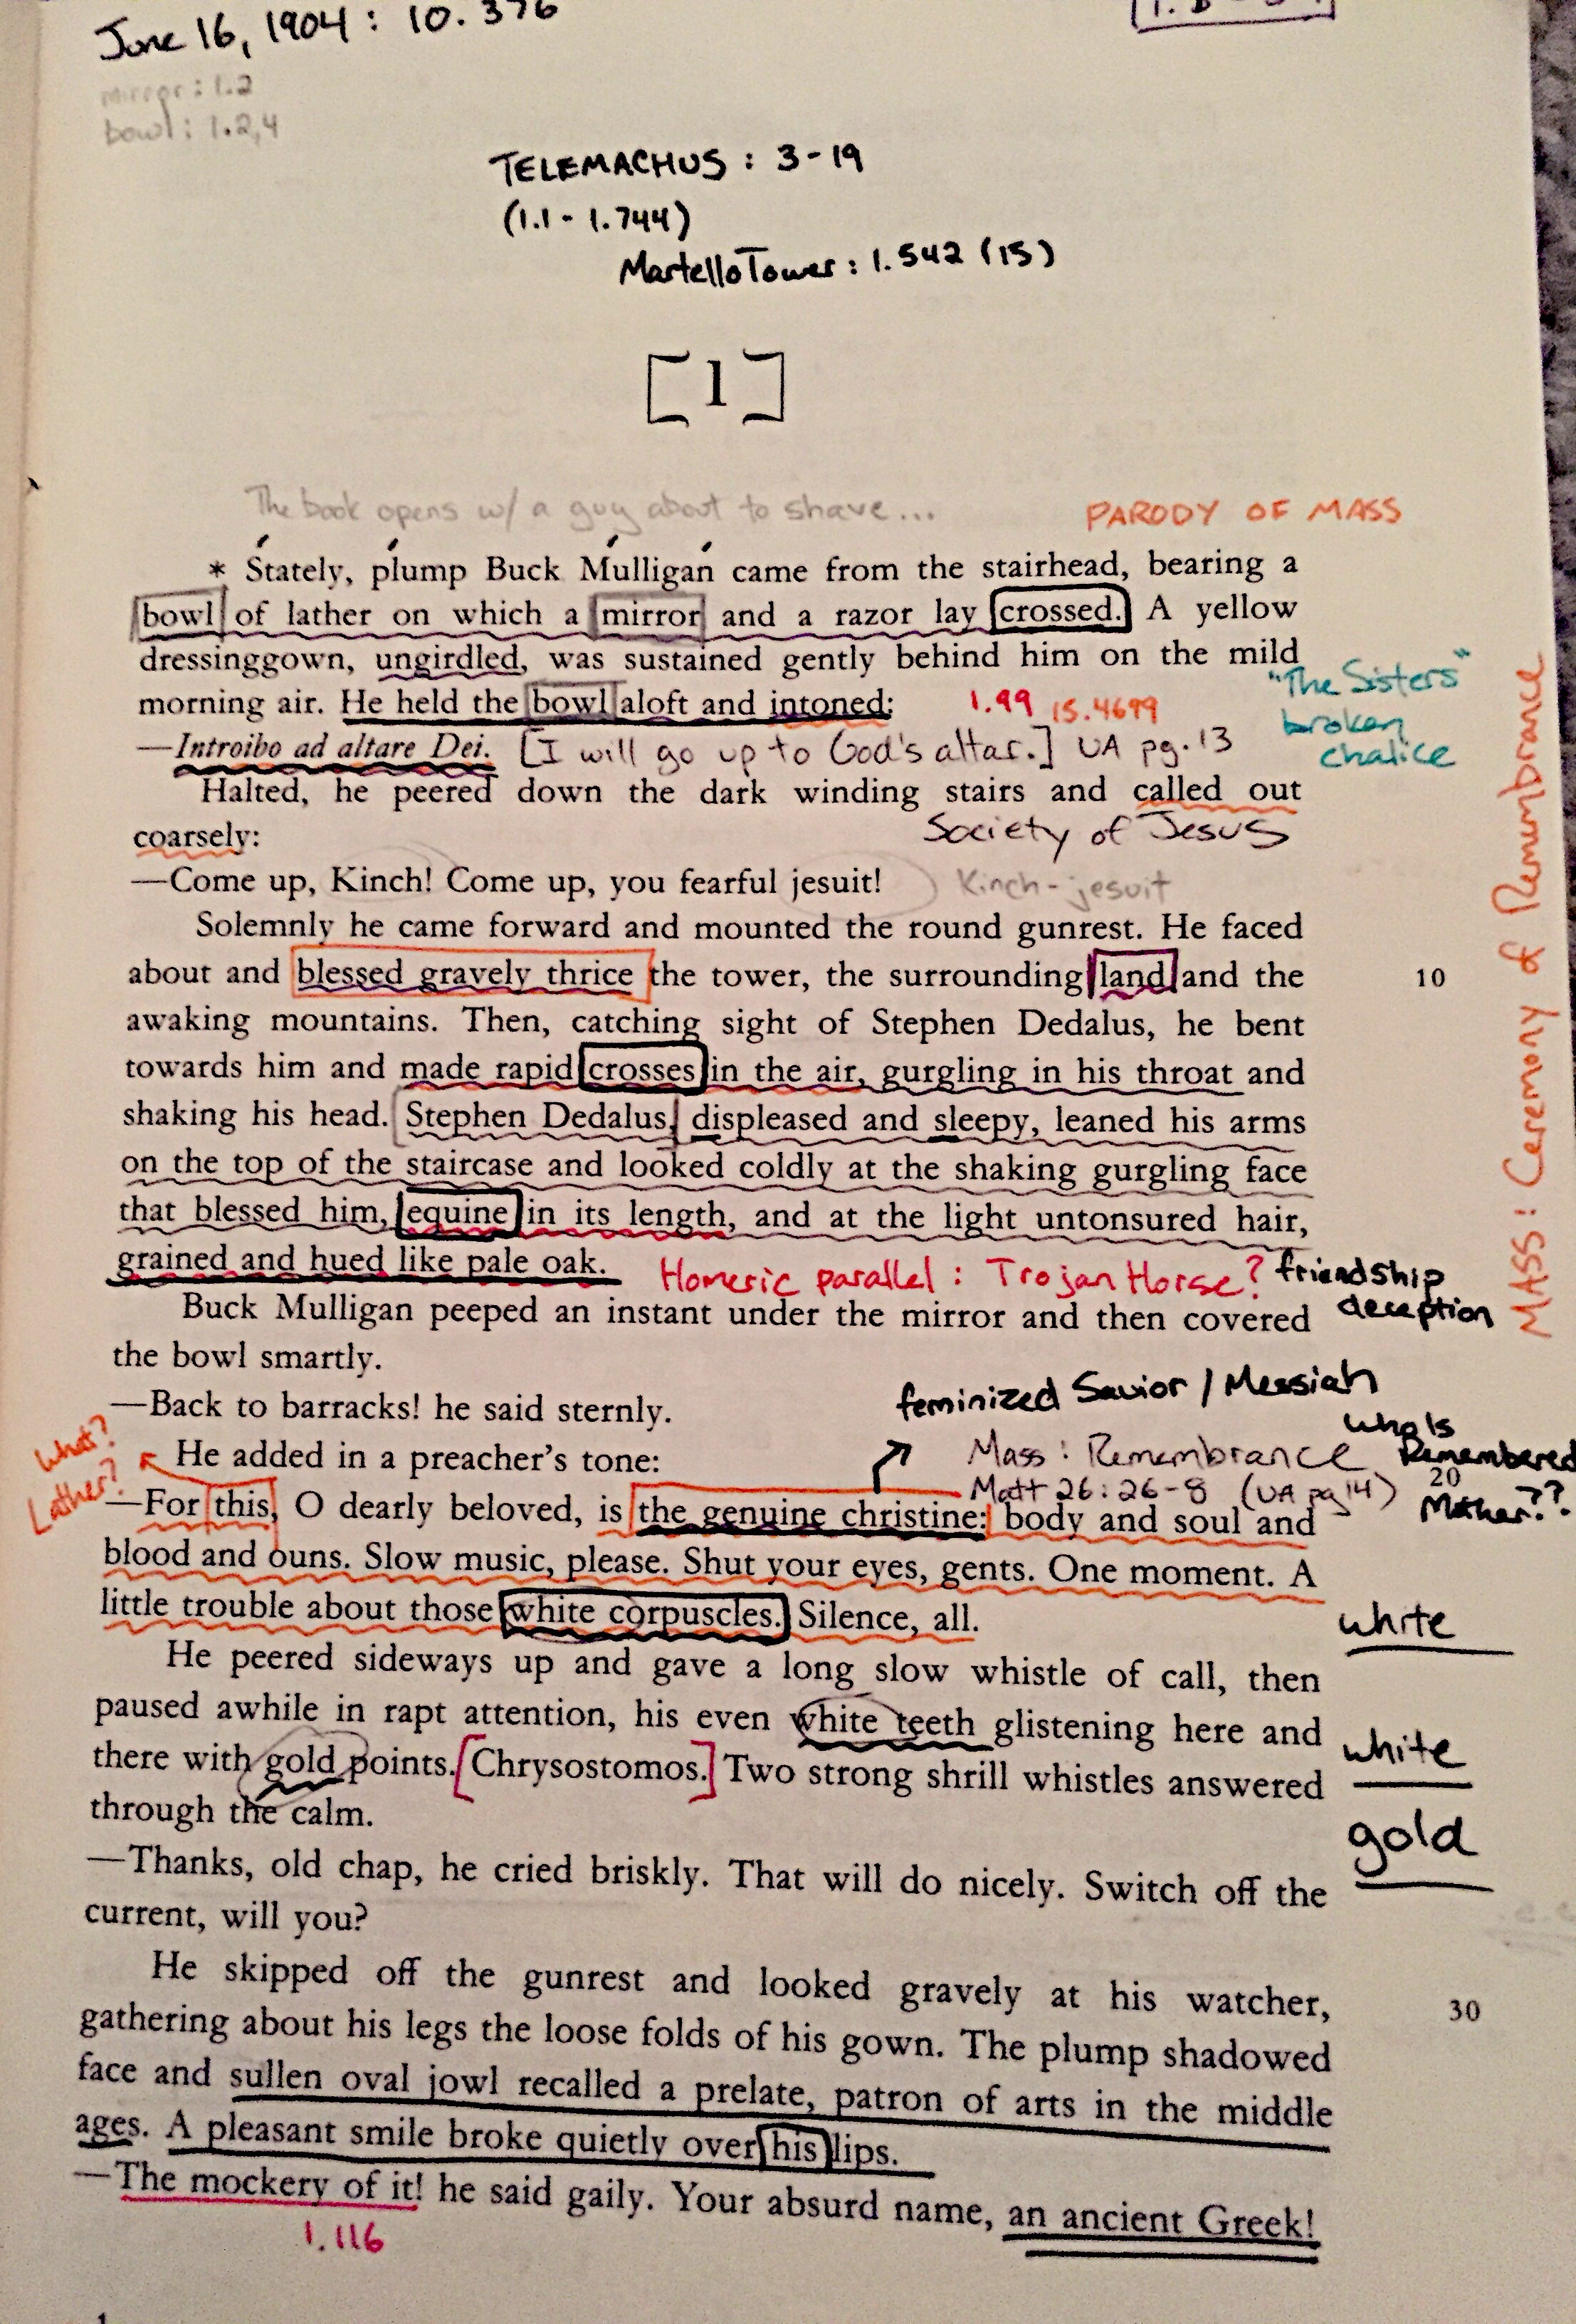 June 16, 1904 : 10. 376
mirror : 1.2
bowl : 1.2,4
TELEMACHUS : 3-19
(1.1 - 1.744)
Martello Tower : 1.542 (15)
[1]
The book opens w/ a guy about to shave...
PARODY OF MASS
* Stately, plump Buck Mulligan came from the stairhead, bearing a
bowl of lather on which a mirror and a razor lay crossed. A yellow
dressinggown, ungirdled, was sustained gently behind him on the mild
"The Sisters"
broken
chalice
morning air. He held the bowl aloft and intoned:
1.99 15.4699
—Introibo ad altare Dei. [I will go up to God's altar.] UA pg. 13
Halted, he peered down the dark winding stairs and called out
coarsely:
Society of Jesus
—Come up, Kinch! Come up, you fearful jesuit!
Kinch - jesuit
Solemnly he came forward and mounted the round gunrest. He faced
about and blessed gravely thrice the tower, the surrounding land and the
10
awaking mountains. Then, catching sight of Stephen Dedalus, he bent
towards him and made rapid crosses in the air, gurgling in his throat and
shaking his head. Stephen Dedalus, displeased and sleepy, leaned his arms
on the top of the staircase and looked coldly at the shaking gurgling face
that blessed him, equine in its length, and at the light untonsured hair,
grained and hued like pale oak.
MASS : Ceremony of Remembrance
Homeric parallel : Trojan Horse?
friendship
deception
Buck Mulligan peeped an instant under the mirror and then covered
the bowl smartly.
—Back to barracks! he said sternly.
feminized Savior / Messiah
He added in a preacher's tone:
What?
Lather?
Mass : Remembrance
Matt 26 : 26-8 (UA pg 14)
Who Is
Remembered
20
Mother??
—For this, O dearly beloved, is the genuine christine: body and soul and
blood and ouns. Slow music, please. Shut your eyes, gents. One moment. A
little trouble about those white corpuscles. Silence, all.
white
He peered sideways up and gave a long slow whistle of call, then
paused awhile in rapt attention, his even white teeth glistening here and
white
there with gold points. [Chrysostomos.] Two strong shrill whistles answered
through the calm.
gold
—Thanks, old chap, he cried briskly. That will do nicely. Switch off the
current, will you?
He skipped off the gunrest and looked gravely at his watcher,
30
gathering about his legs the loose folds of his gown. The plump shadowed
face and sullen oval jowl recalled a prelate, patron of arts in the middle
ages. A pleasant smile broke quietly over his lips.
—The mockery of it! he said gaily. Your absurd name, an ancient Greek!
1.116